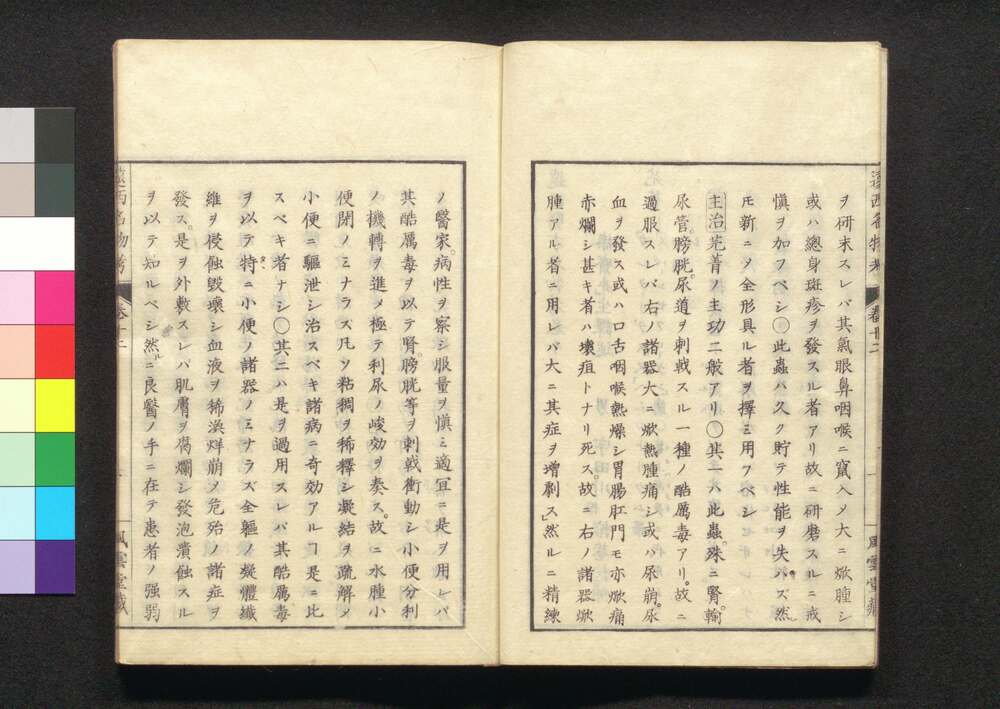 ヲ研末スレバ其氣眼鼻咽喉ニ竄入メ大ニ焮腫シ
或ハ總身斑疹ヲ發スル者アリ故ニ研磨スルニ戒
愼ヲ加フベシ〇此蟲ハ久ク貯テ性能ヲ失ハズ然
モ新ニメ全形具ル者ヲ擇ミ用フベシ
主治芫菁ノ主功二般アリ〇其一ハ此蟲殊ニ腎輸
尿管膀胱尿道ヲ刺戟スル一種ノ酷厲毒アリ故ニ
過服スレバ右ノ諸器大ニ焮熱腫痛シ或ハ尿崩尿
血ヲ發ス或ハ口舌咽喉熱燥シ胃腸肛門モ亦焮痛
赤爛シ甚キ者ハ壊疽トナリ死ス故ニ右ノ諸器焮
腫アル者ニ用レバ大ニ其症ヲ増劇ス然ルニ精練
遠西名物考 卷卅二
風雲堂藏
ノ醫家病性ヲ察シ服量ヲ愼ミ適宜ニ是ヲ用レバ
其酷厲毒ヲ以テ腎膀胱等ヲ刺戟衝動シ小便分利
ノ機轉ヲ進メ極テ利尿ノ峻効ヲ奏ス故ニ水腫小
便閉ノミナラズ凡ソ粘稠ヲ稀釋シ凝結ヲ疏解メ
小便ニ驅泄シ治スベキ諸病ニ奇効アルヿ是ニ比
スベキ者ナシ〇其二ハ是ヲ過用スレバ其酷厲毒
ヲ以テ特ニ小便ノ諸器ノミナラズ全軀ノ凝體纖
維ヲ侵蝕毀壊シ血液ヲ稀渙烊崩メ危殆ノ諸症ヲ
發ス是ヲ外敷スレバ肌膚ヲ腐爛シ發泡潰蝕スル
ヲ以テ知ルベシ然ルニ良醫ノ手ニ在テ患者ノ强弱
遠西名物考
風雲堂藏